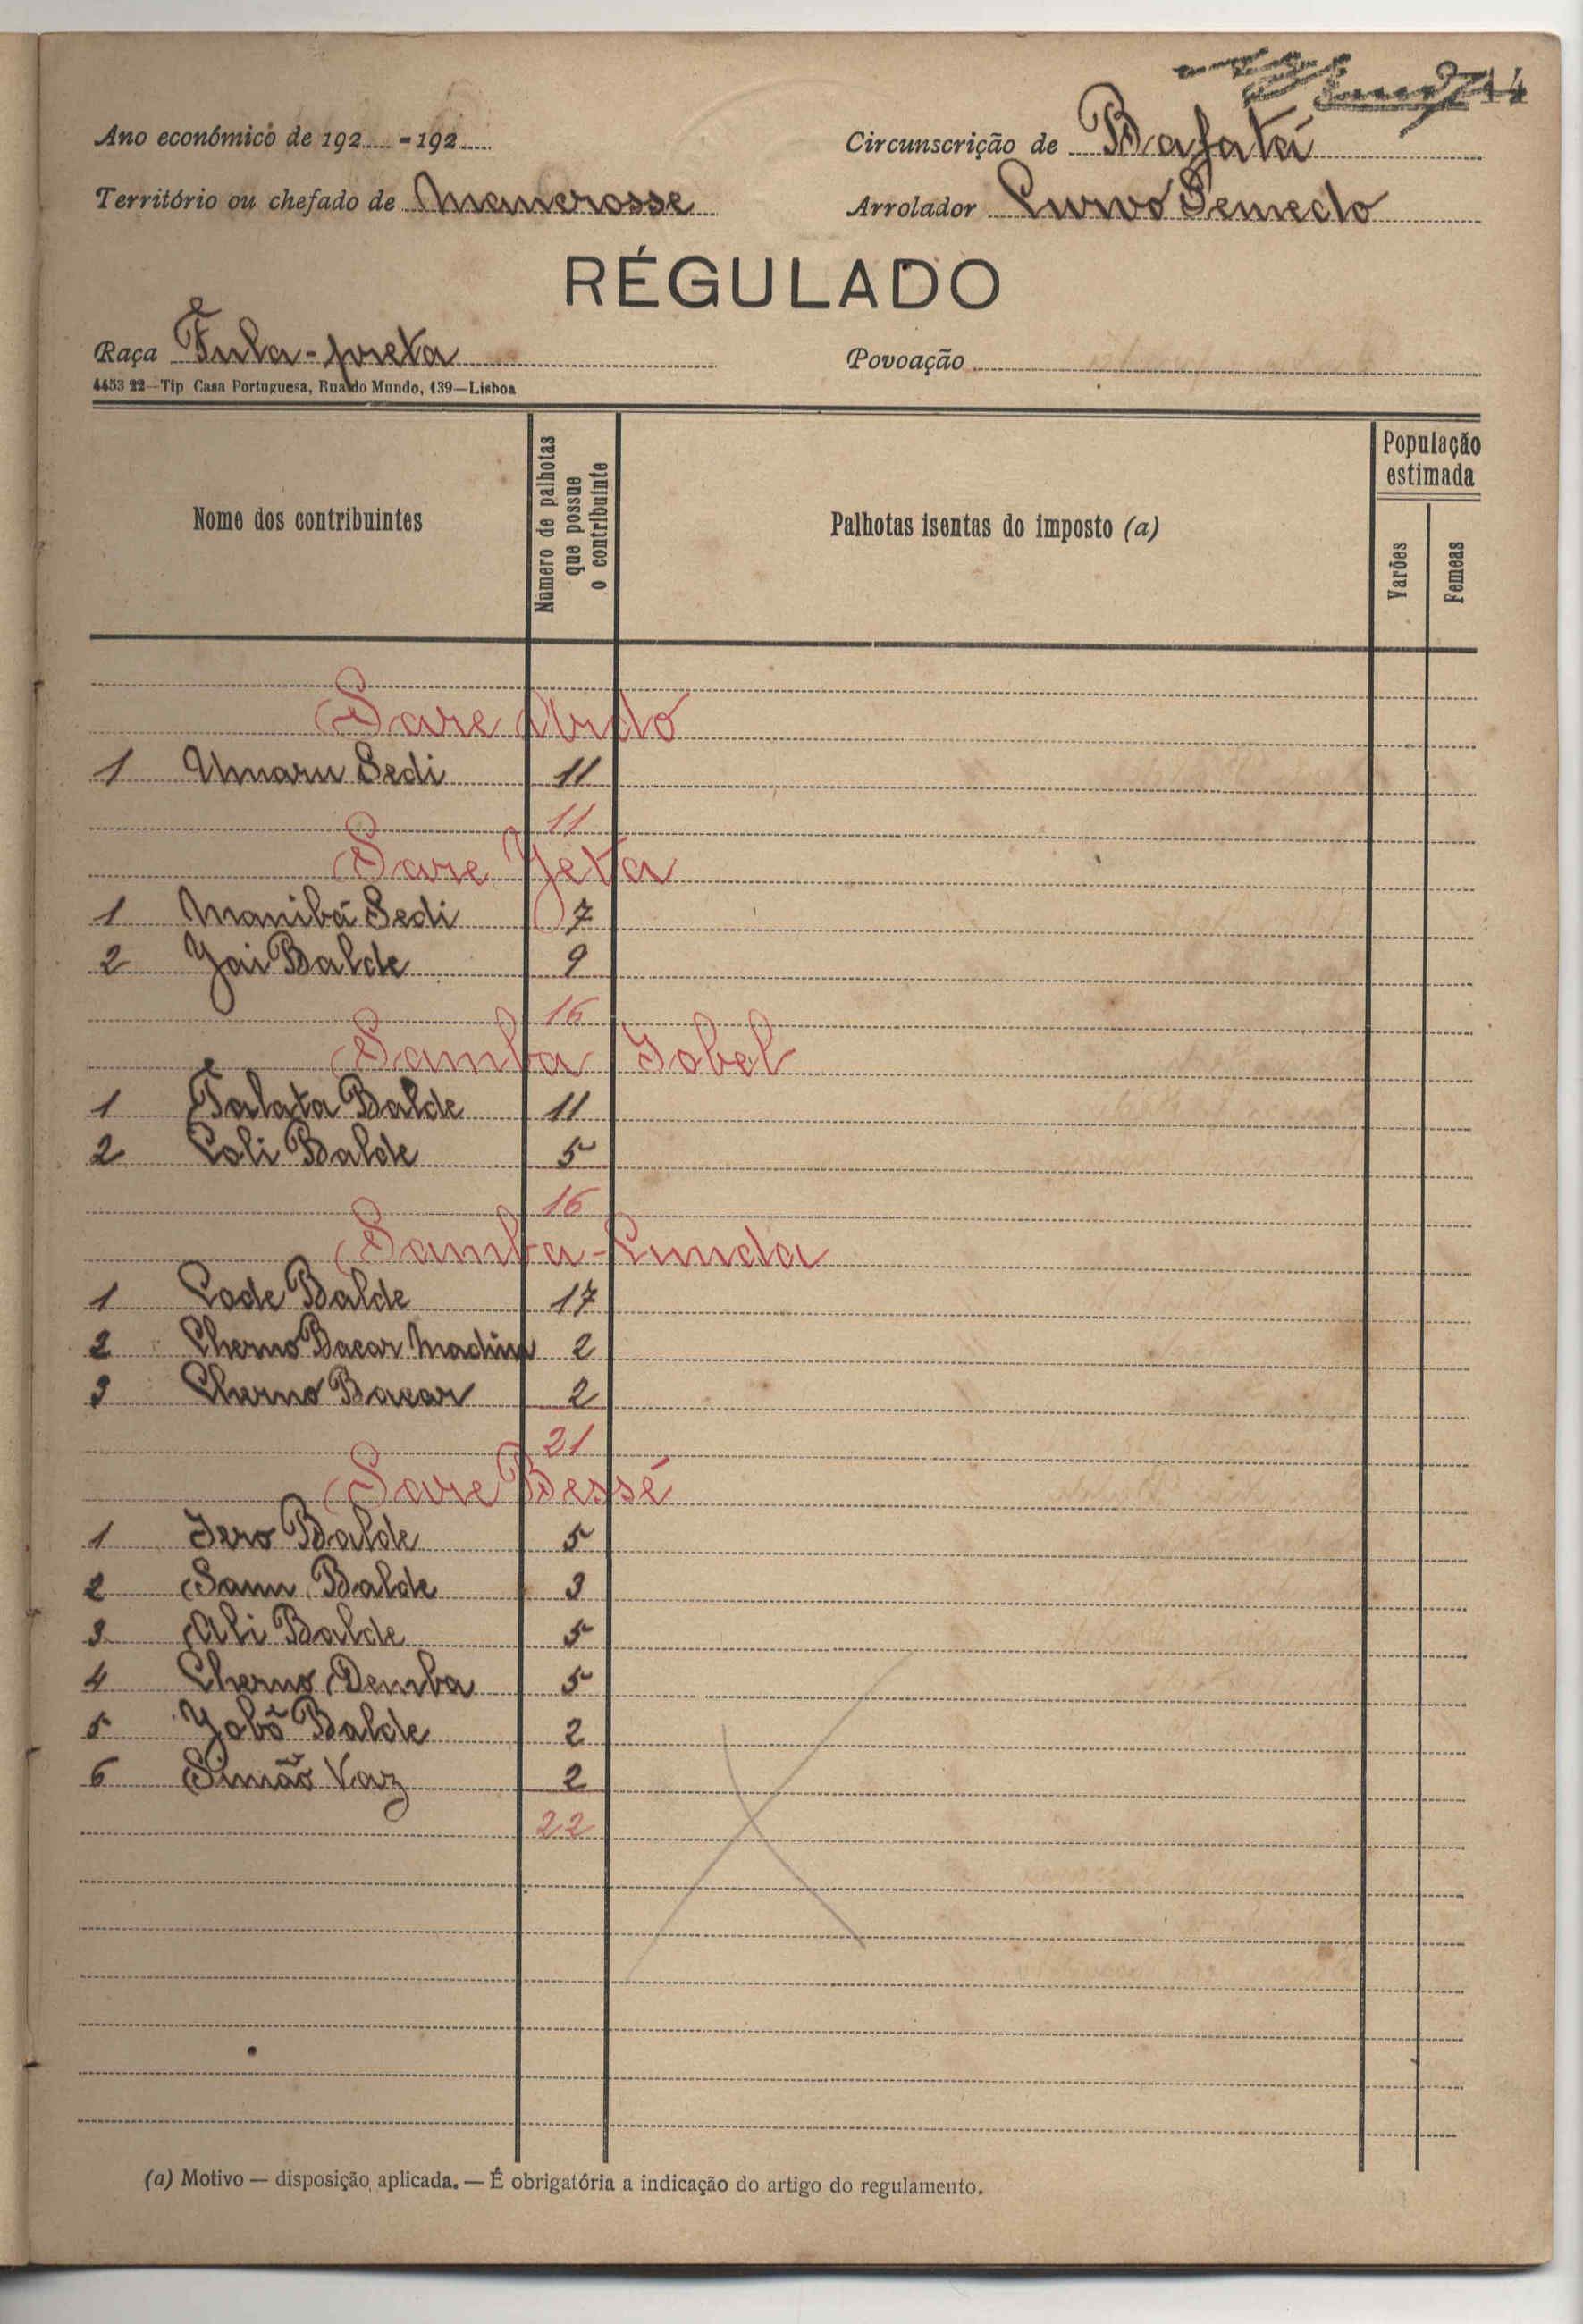 14
Ano económico de 192 - 192
Circunscrição de Bafatá
Território ou chefado de Mancrosse
Arrolador Curvo Semedo
RÉGULADO
Raça Fula-preta
Povoação
4453 22—Tip Casa Portuguesa, Rua do Mundo, 139—Lisboa
Nome dos contribuintes
Número de palhotas que possue o contribuinte
Palhotas isentas do imposto (a)
População estimada
Varões
Femeas
Sare Ardó
1 Umaru Sedi 11
11
Sare Yéta
1 Manibá Sedi 7
2 Yai Balde 9
16
Samba Jobel
1 Talata Balde 11
2 Coli Balde 5
16
Samba-Cunda
1 Code Balde 17
2 Cherno Bacar Madina 2
3 Cherno Bacar 2
21
Sare Bessé
1 Jero Balde 5
2 Samu Balde 3
3 Ali Balde 5
4 Cherno Demba 5
5 Yobõ Balde 2
6 Simão Vaz 2
22
(a) Motivo — disposição aplicada. — É obrigatória a indicação do artigo do regulamento.